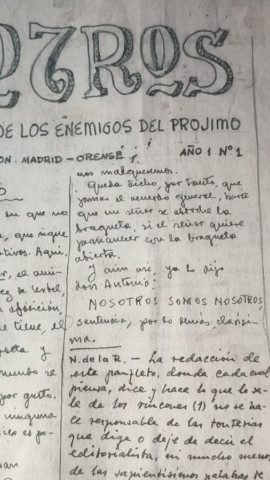 OTROS
DE LOS ENEMIGOS DEL PROJIMO
ON. MADRID - ORENSE
AÑO 1 Nº 1
en que no
que sigue
tivos. Aquí,
el ami-
oposición,
tiene, el
mundo se
por gusto.
ninguna
es po-
nos malqueremos.
Queda dicho, por tanto, que
jamás el acuerdo general, hará
que un señor se abroche la
bragueta, si el señor quiere
permanecer con la bragueta
abierta.
Y aún así, ya lo dijo
don Antonio:
NOSOTROS SOMOS NOSOTROS,
sentencia, por lo demás clarísi-
ma.
N. de la R. - La redacción de
este panfleto, donde cada cual
piensa, dice y hace lo que le sa-
le de los rincones (1) no se ha-
ce responsable de las tonterías
que diga o deje de decir el
editorialista, ni mucho menos
de las sapientísimas palabras de